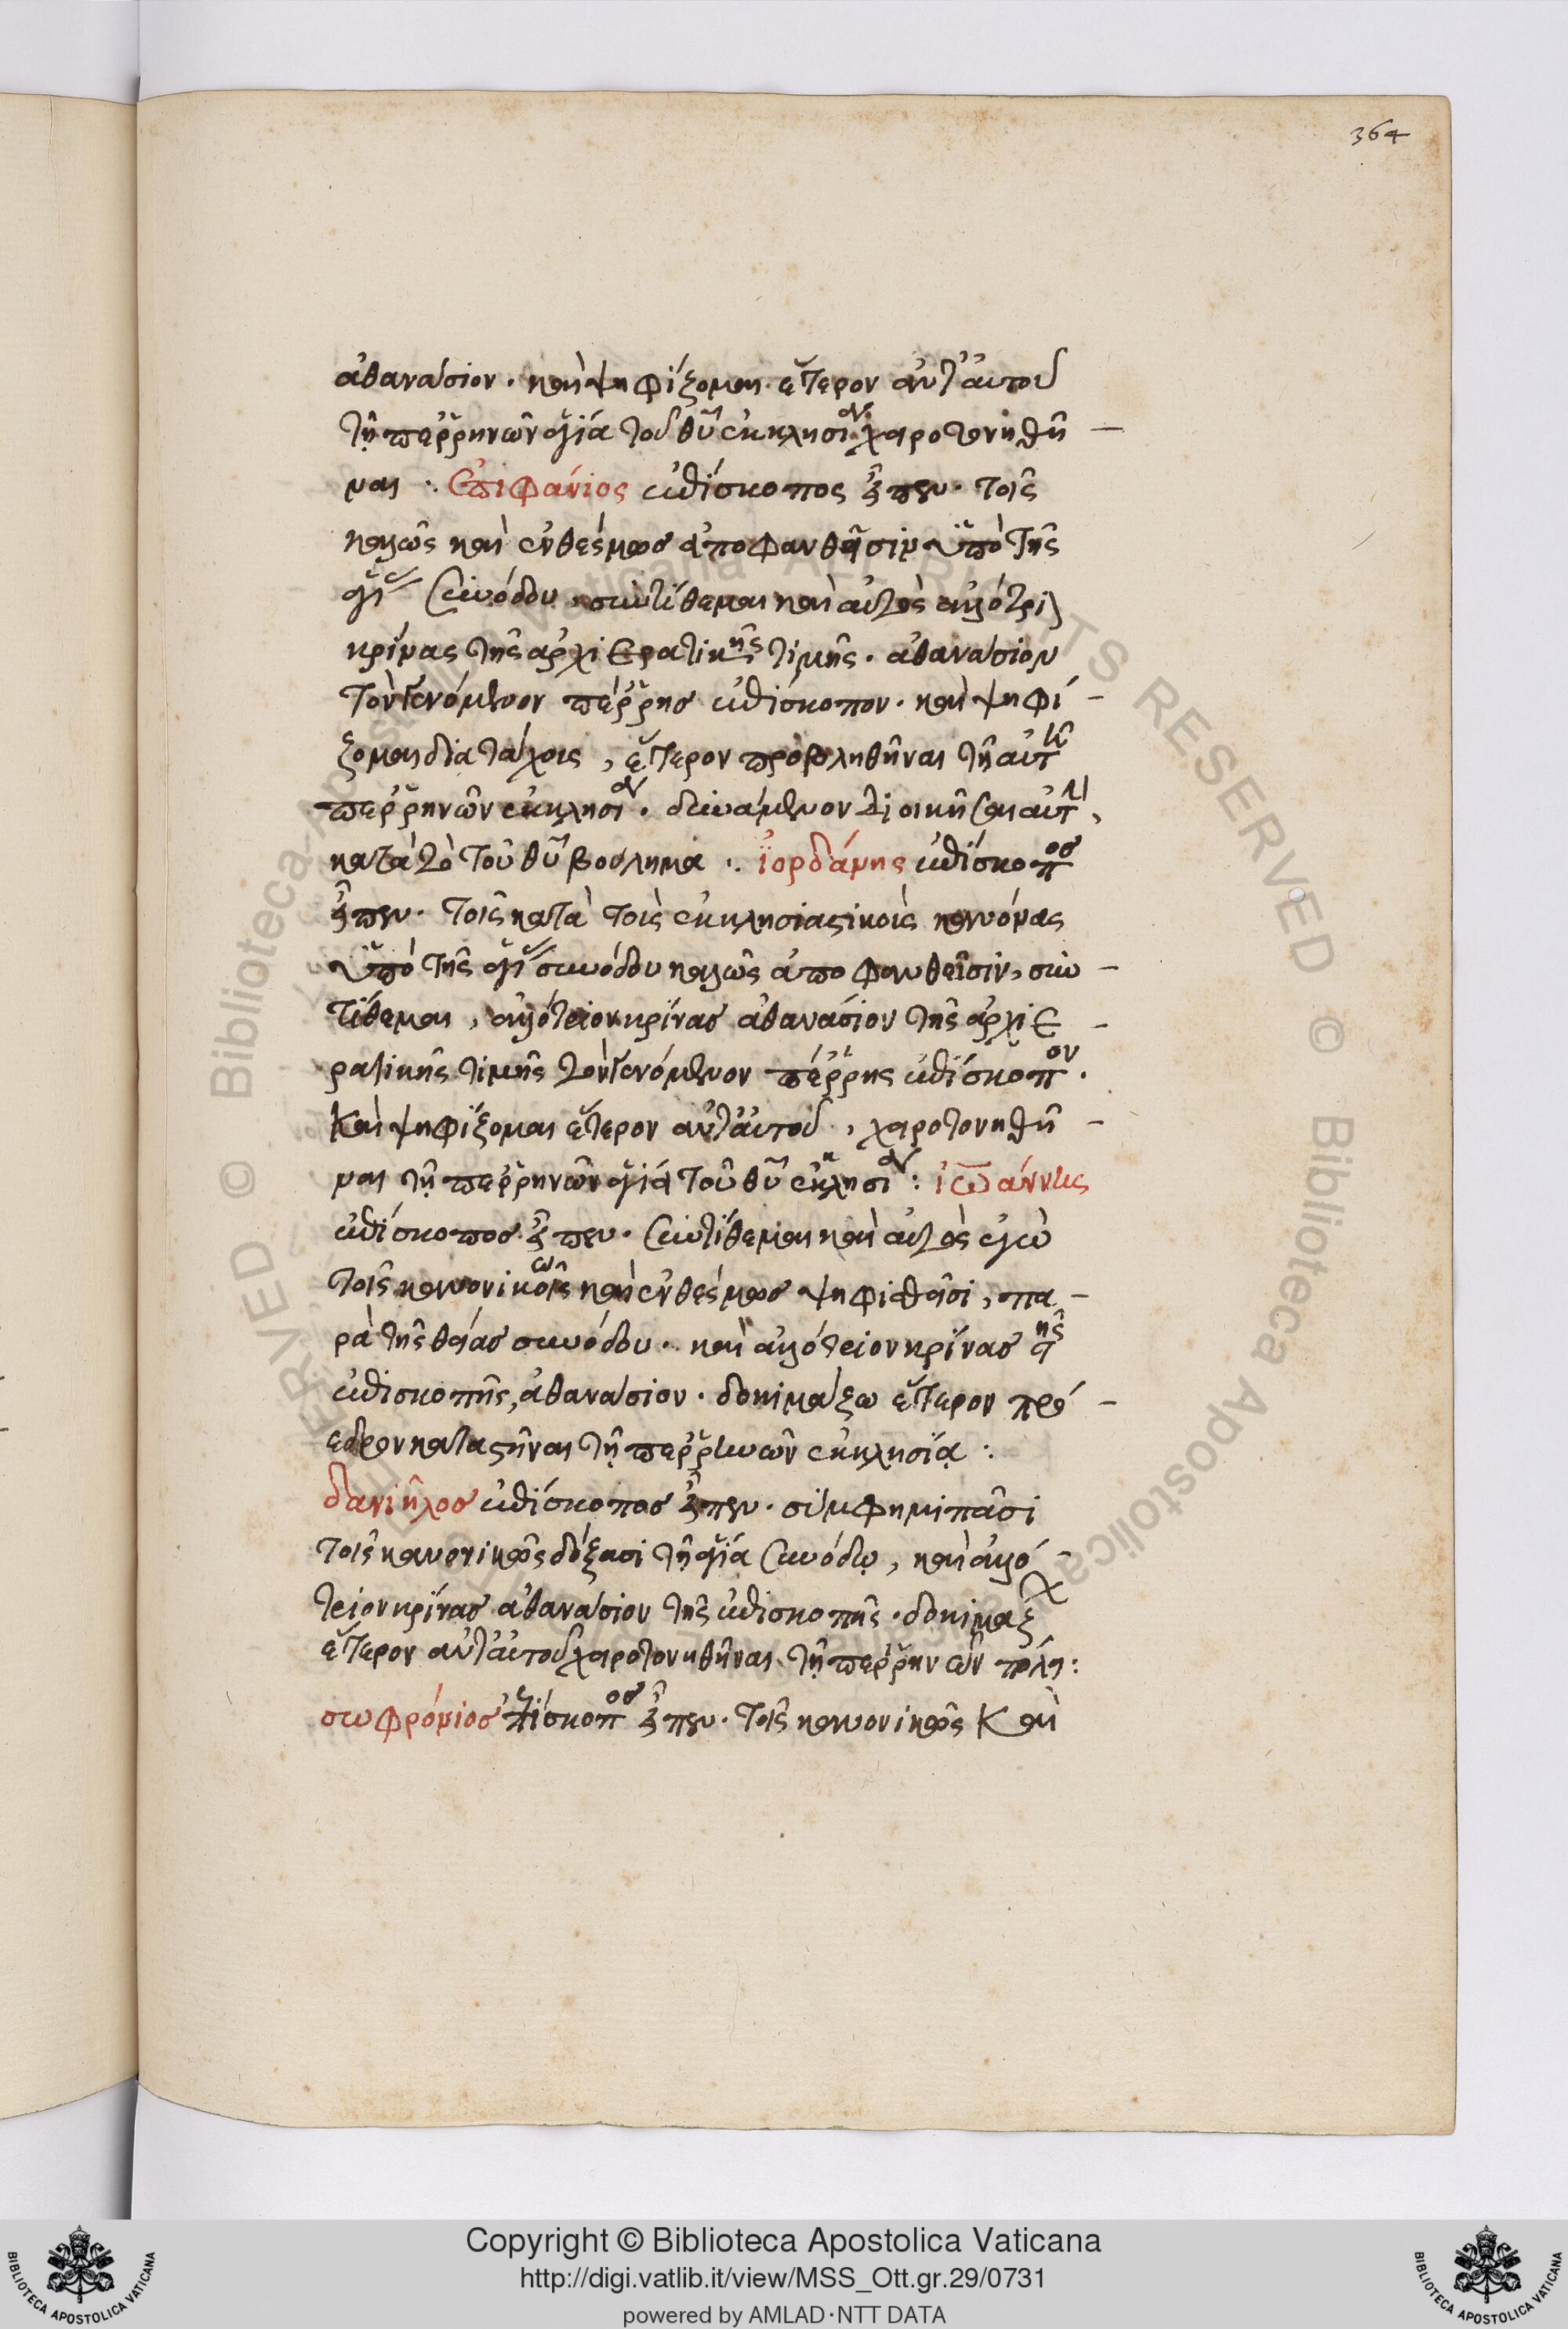 364
ἀθανάσιον · καὶ ψηφίζομαι ἕτερον ἀντ' αὐτοῦ
τῇ περρηνῶν ἁγία τοῦ θυ ἐκκλησία χειροτονηθῆ –
ναι : Ἐπιφάνιος ἐπίσκοπος εἶπεν · τοῖς
καλῶς καὶ ἐνθέσμως ἀποφανθεῖσιν ὑπὸ τῆς
ἁγί συνόδου συντίθεμαι καὶ αὐτὸς ἀλλότρι
κρίνας τῆς ἀρχιερατικῆς τιμῆς · ἀθανάσιον
τὸν γενόμενον πέρρης ἐπίσκοπον · καὶ ψηφί –
ζομαι διὰ τάχους, ἕτερον προβληθῆναι τῆ αὐτ
περρηνῶν ἐκκλησία · δυνάμενον διοικῆσαι αὐτ,
κατὰ τὸ τοῦ θυ βούλημα : ϊορδάνης ἐπίσκοπος
εἶπεν · τοῖς κατὰ τοὺς ἐκκλησιαστικοὺς κανόνας
ὑπὸ τῆς ἁγί συνόδου καλῶς ἀποφανθεῖσιν, συν –
τίθεμαι, ἀλλότριον κρίνας ἀθανάσιον τῆς ἀρχιε –
ρατικῆς τιμῆς τὸν γενόμενον πέρρης ἐπίσκοπον ·
Καὶ ψηφίζομαι ἕτερον ἀντ' αὐτοῦ, χειροτονηθῆ –
ναι τῇ περρηνῶν ἁγία τοῦ θυ ἐκκλησία : ἰωάννης
ἐπίσκοπος εἶπεν · συντίθεμαι καὶ αὐτὸς ἐγὼ
τοῖς κανονικῶς καὶ ἐνθέσμως ψηφισθεῖσι, πα –
ρὰ τῆς θείας συνόδου · καὶ ἀλλότριον κρίνας τῆς
ἐπισκοπῆς, ἀθανάσιον · δοκιμάζω ἕτερον πρό –
εδρον καταστῆναι τῇ περρηνῶν ἐκκλησίᾳ :
δανιῆλος ἐπίσκοπος εἶπεν · σύμφημι πᾶσι
τοῖς κανονικῶς δόξασι τῇ ἁγία συνόδῳ, καὶ ἀλλό –
τριον κρίνας ἀθανάσιον τῆς ἐπισκοπῆς · δοκιμάζ
ἕτερον ἀντ' αὐτοῦ χειροτονηθῆναι τῇ περρηνῶν πόλει :
σωφρόνιος ἐπίσκοπος εἶπεν · τοῖς κανονικῶς Καὶ
Copyright © Biblioteca Apostolica Vaticana
http://digi.vatlib.it/view/MSS_Ott.gr.29/0731
powered by AMLAD·NTT DATA